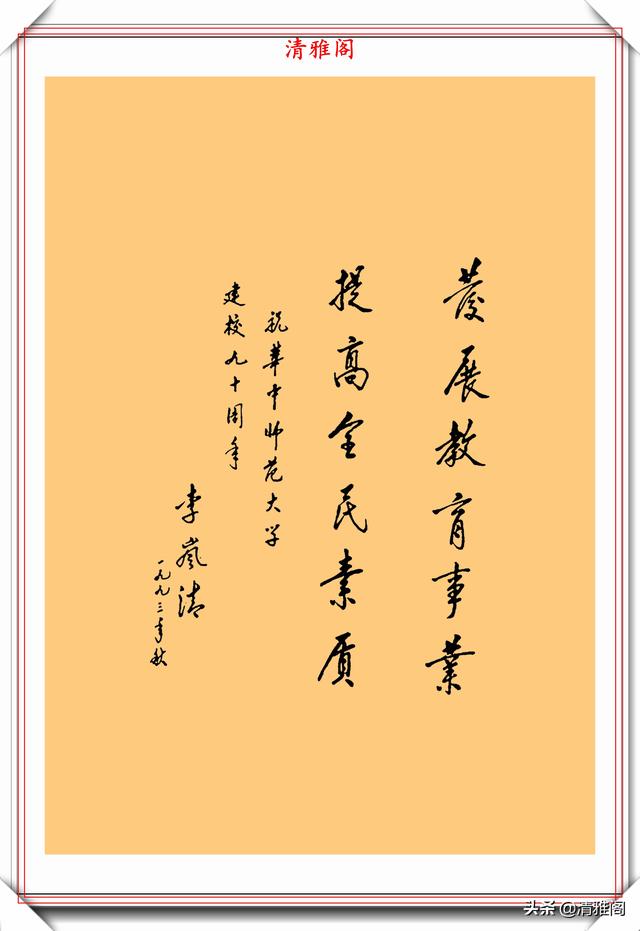 清雅阁
发展教育事业
提高全民素质
祝华中师范大学
建校九十周年
李岚清
一九九三年秋
头条 @清雅阁